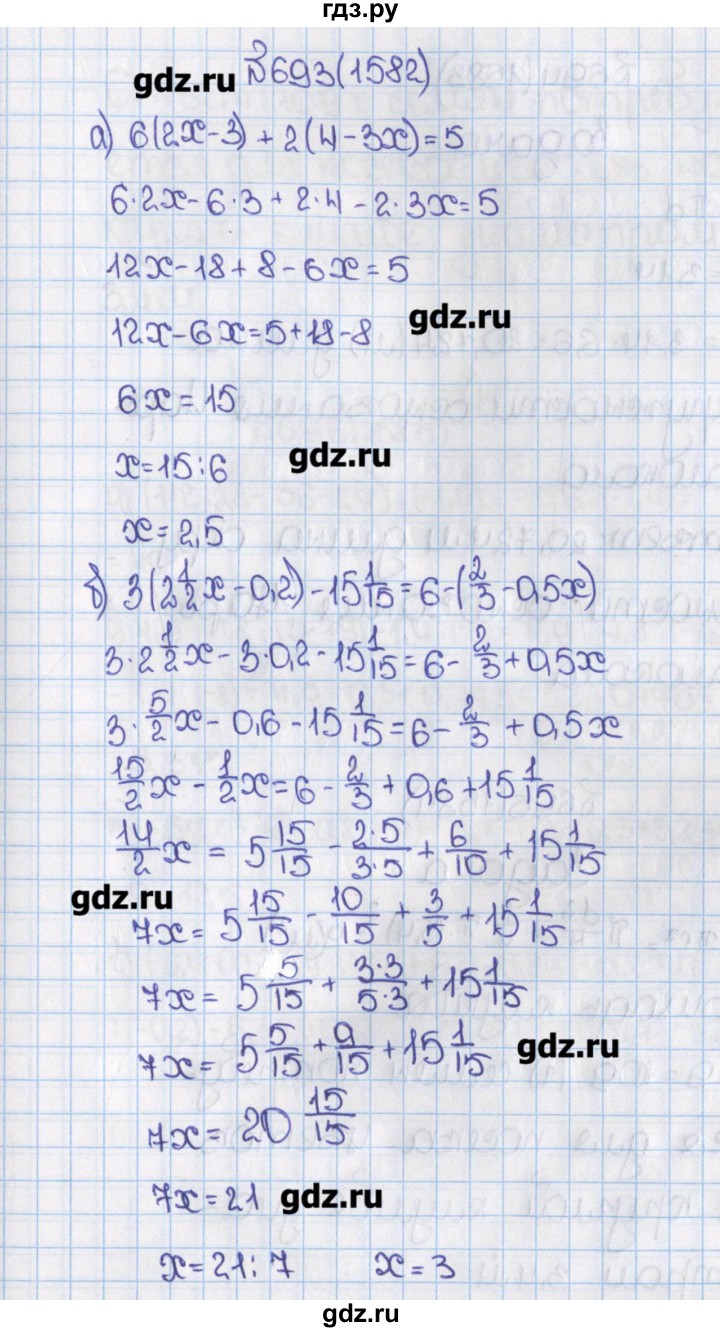 гдз.ру
№693(1582)
gdz.ru
а) 6(2x-3)+2(4-3x)=5
6·2x-6·3+2·4-2·3x=5
12x-18+8-6x=5
12x-6x=5+18-8
gdz.ru
6x=15
x=15:6
gdz.ru
x=2,5
б) 3(2 1/2 x-0,2)-15 1/15=6-(2/3-0,5x)
3·2 1/2 x-3·0,2-15 1/15=6-2/3+0,5x
3·5/2 x-0,6-15 1/15=6-2/3+0,5x
15/2 x-1/2 x=6-2/3+0,6+15 1/15
14/2 x=5 15/15-2·5/3·5+6/10+15 1/15
gdz.ru
7x=5 15/15-10/15+3/5+15 1/15
7x=5 5/15+3·3/5·3+15 1/15
7x=5 5/15+9/15+15 1/15
gdz.ru
7x=20 15/15
7x=21
gdz.ru
x=21:7 x=3
gdz.ru